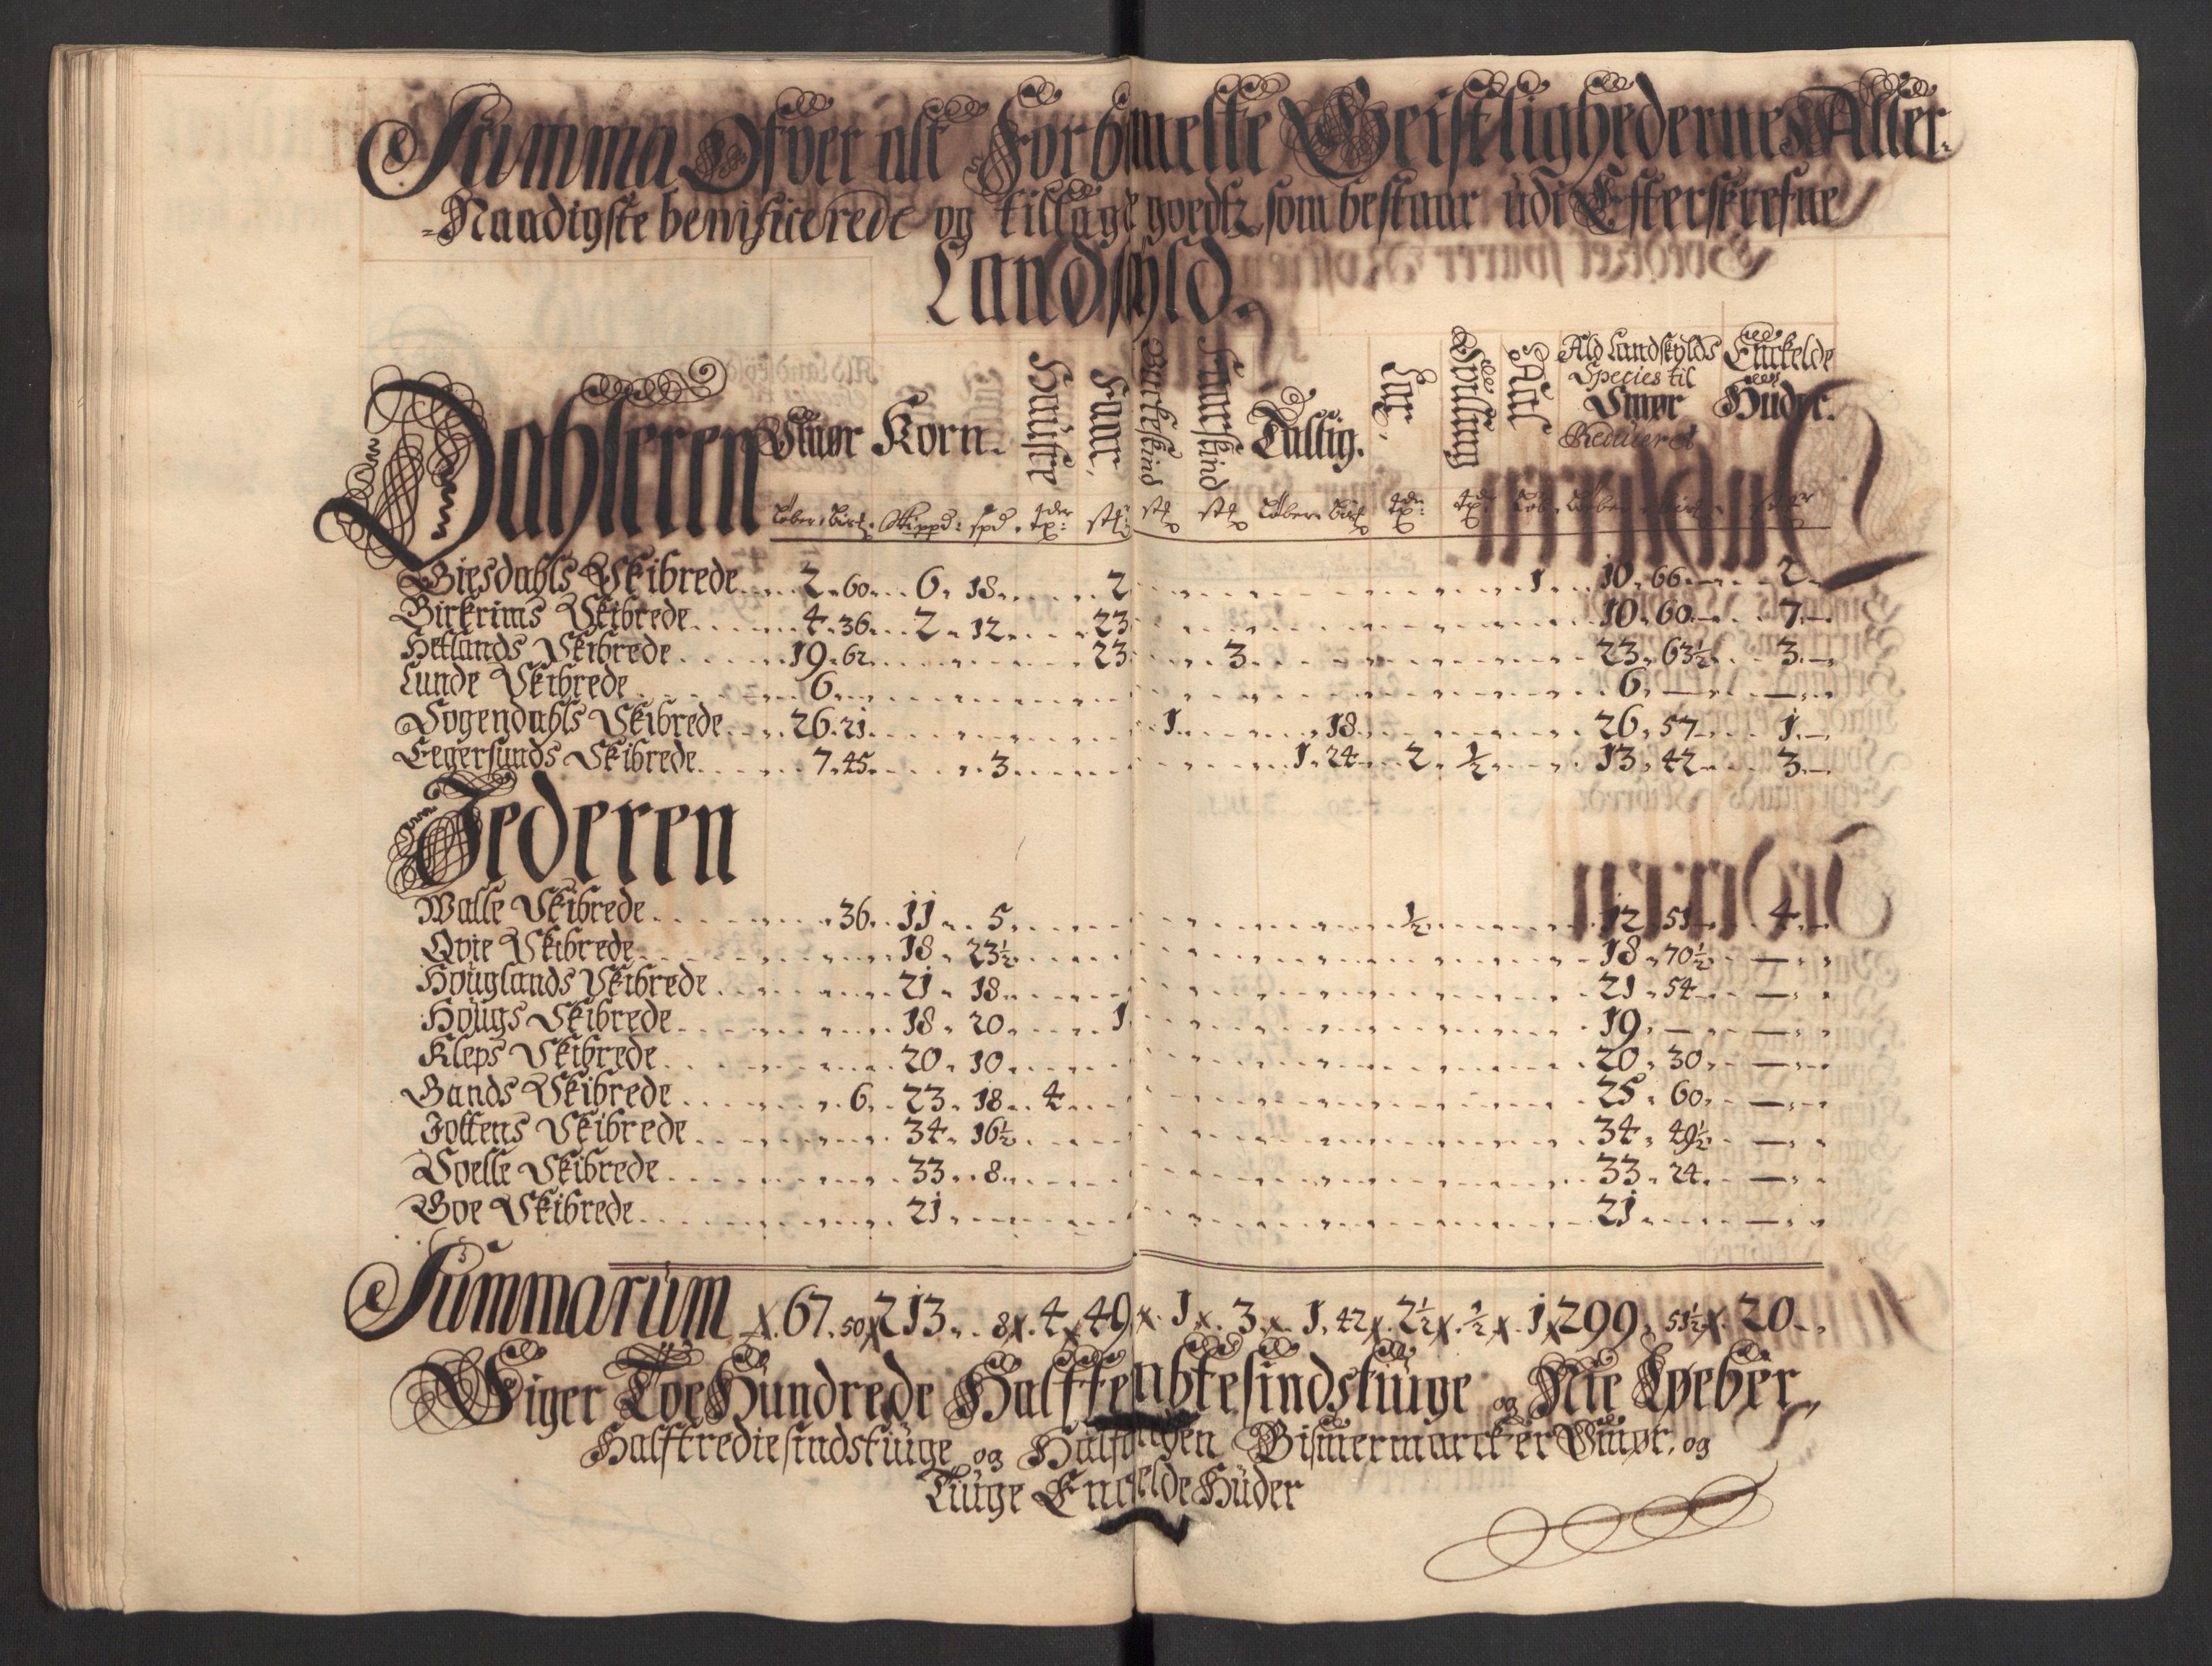 Summa Ofver alt Forbmelte Geistlighedernes Aller-
-Naadigste benificerede og tillagte goedtz, som bestaar udi Efterskrefne
Landskyld.
Dahleren Smør Korn. Haufre Faar, Buckeskind Faarskind Tallig. Lax, Ald Landskylds Species til Smør Reducerit Enckelde Huder.
Løber. Skippd: spd. tdr st: st st Løber.
Giesdahls Skibrede 2. 60. 6. 18. 2 1. 10. 66 2
Birkrims Skibrede 4. 36. 2. 12. 23 10. 60. 7.
Hetlands Skibrede 19. 62. 23 3. 23. 63½. 3.
Lunde Skibrede 6. 6. —
Sogendahls Skibrede 26. 21. 1. 18. 26. 57. 1.
Eegersunds Skibrede 7. 45. 3. 1. 24. 2. ½. 13. 42. 3.
Jederen
Walle Skibrede 36. 11. 5. ½. 12. 51. 4.
Qvie Skibrede 18. 23½. 18. 70½. —
Houglands Skibrede 21. 18. 21. 54. —
Høugs Skibrede 18. 20. 1 19. — —
Kleps Skibrede 20. 10. 20. 30. —
Gands Skibrede 6. 23. 18. 4. 25. 60. —
Jottens Skibrede 34. 16½. 34. 49½. —
Soelle Skibrede 33. 8. 33. 24. —
Goe Skibrede 21. 21. —
Summarum x. 67. 50 x 213. 8 x. 4 x 49 x. 1 x. 3 x. 1. 42 x. 2½ x. ½ x. 1 x 299. 51½ x. 20
Siger Toe Hundrede Halffembtesindstiuge og Nie Løeber,
Halftrediesindstiuge og Bismermarcker Smør, og
Tiuge Enckelde Huder